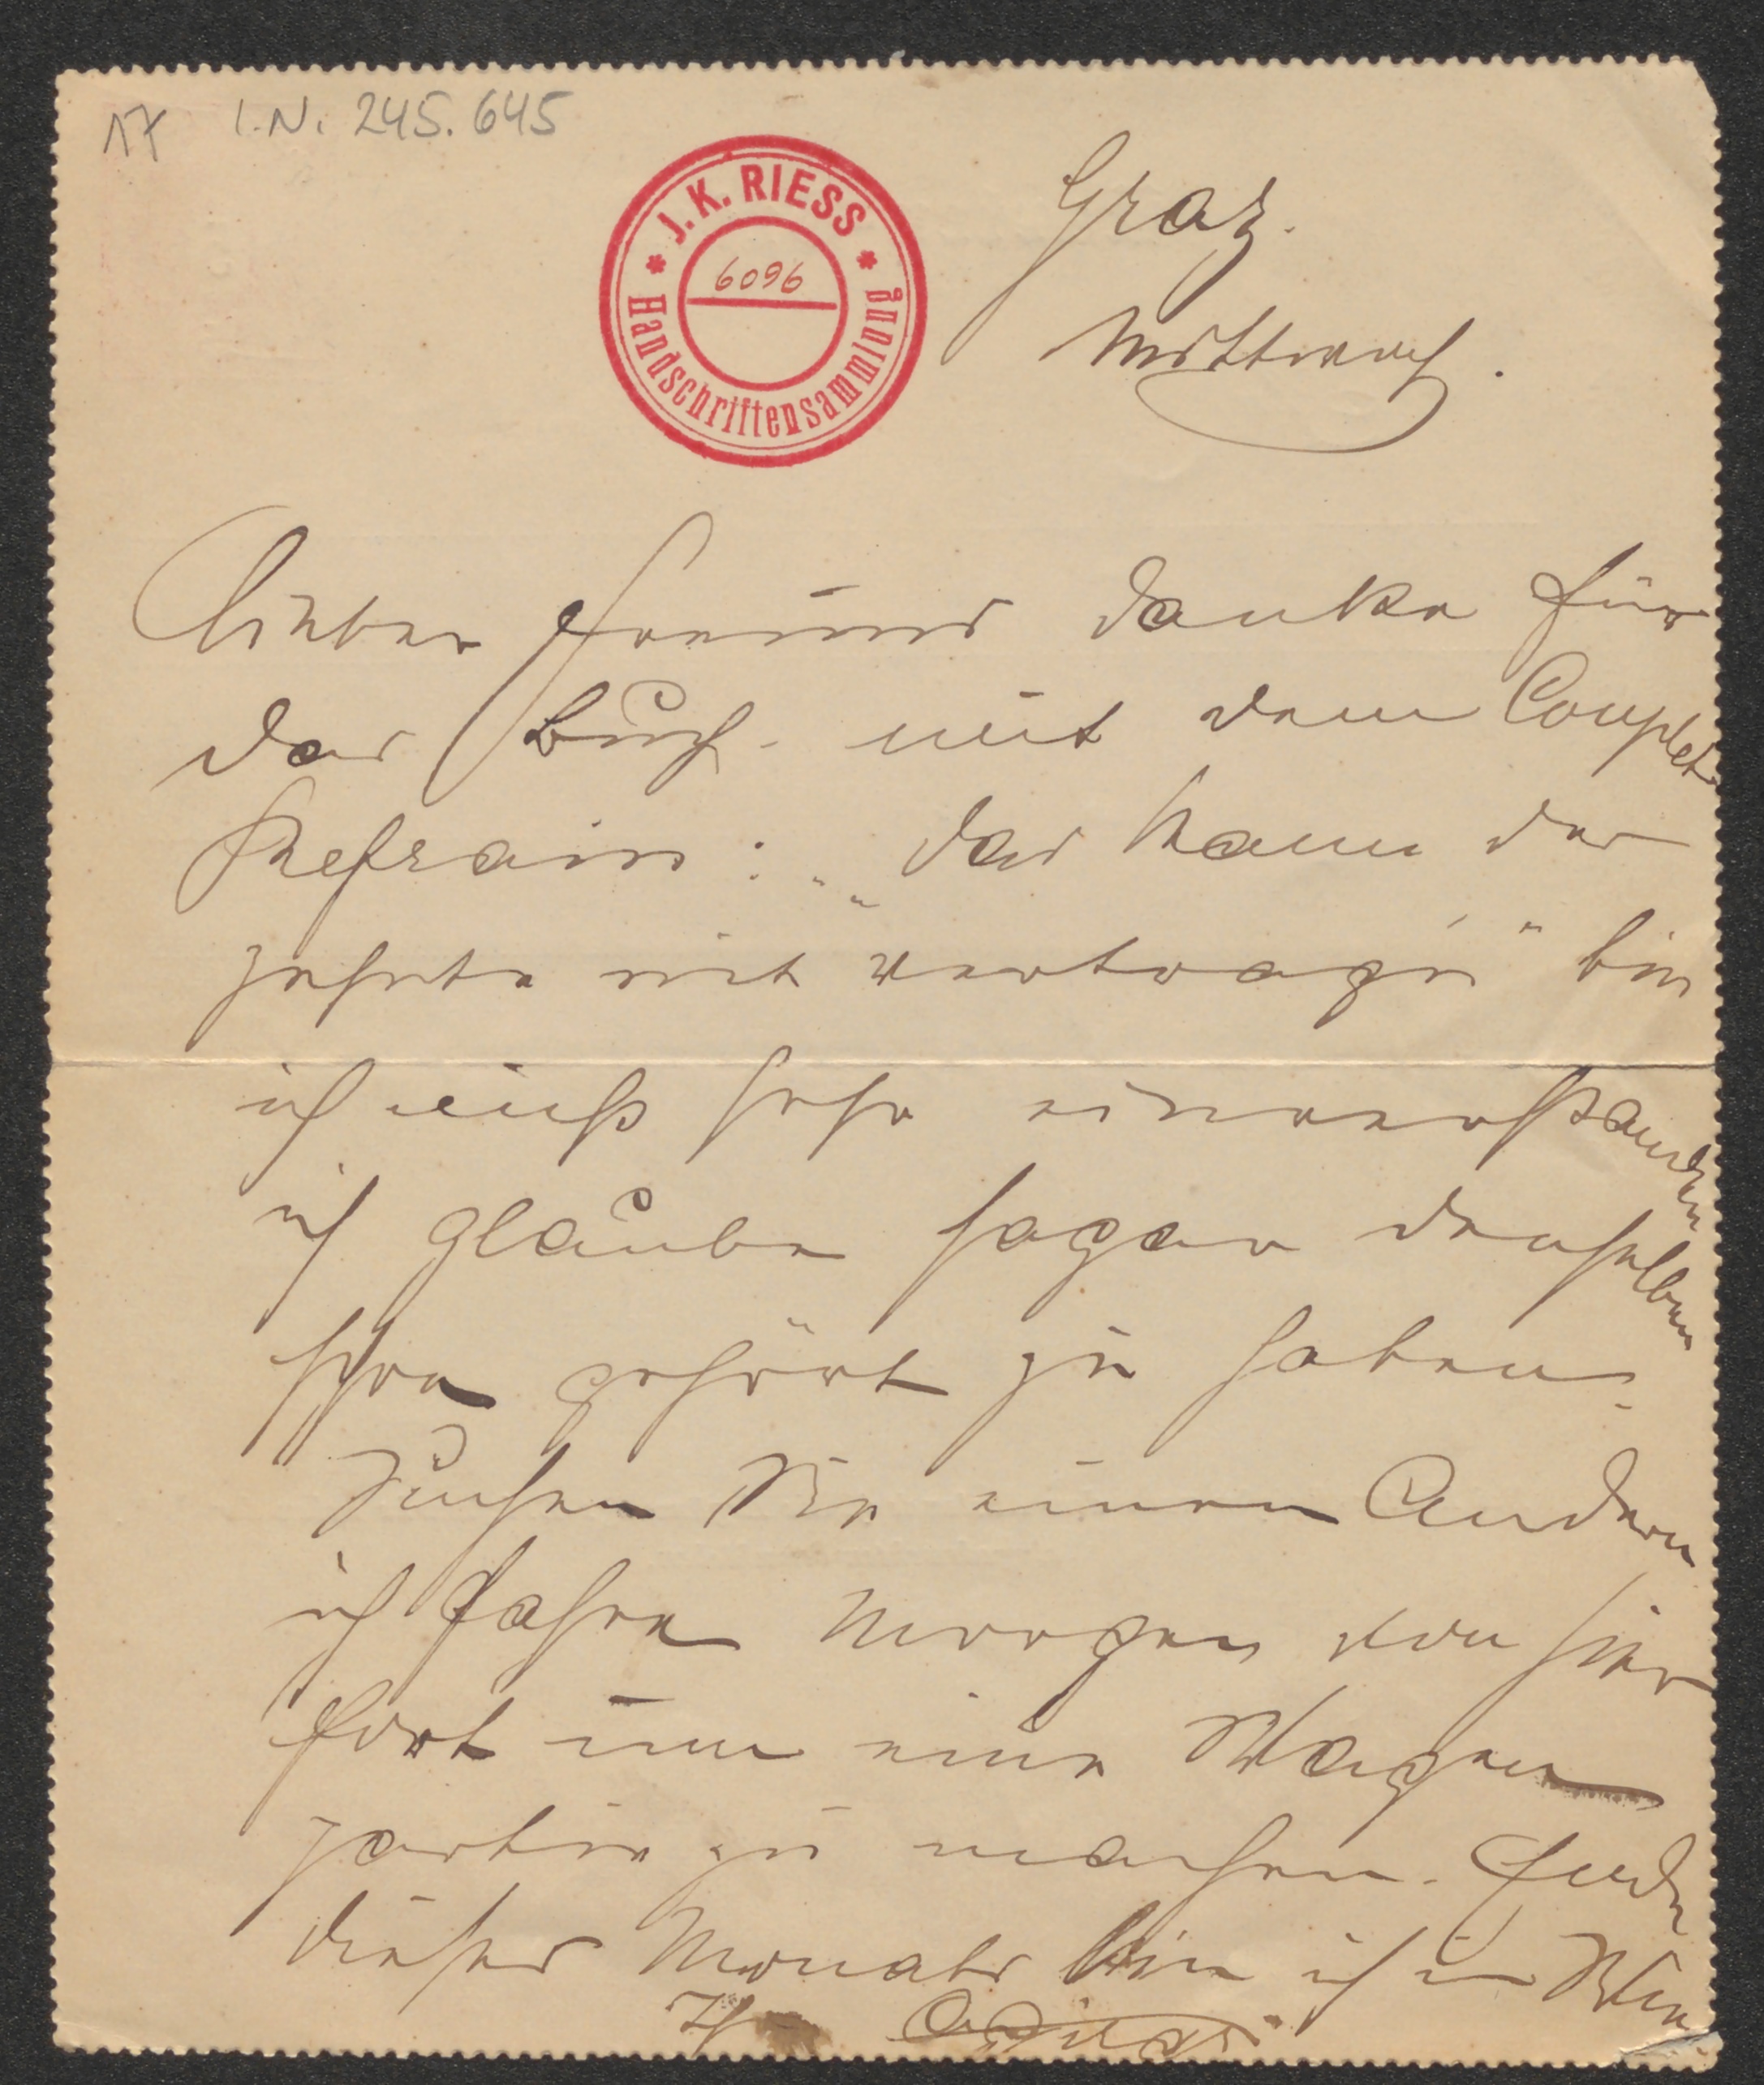 17 I.N. 245.645
J. K. RIESS
6096
Handschriftensammlung
Graz.
Mittwoch.
Lieber Freund danke für
das Buch. mit dem Couplet
Refrain: „das kann der
zehnte nit vertrag'n" bin
ich nicht sehr einverstanden
ich glaube sogar denselben
schon gehört zu haben.
Suchen Sie einen Andern
ich fahre morgen von hier
fort um eine Wagen
partie zu machen. Ende
dieses Monats bin ich in Wien
Ihr